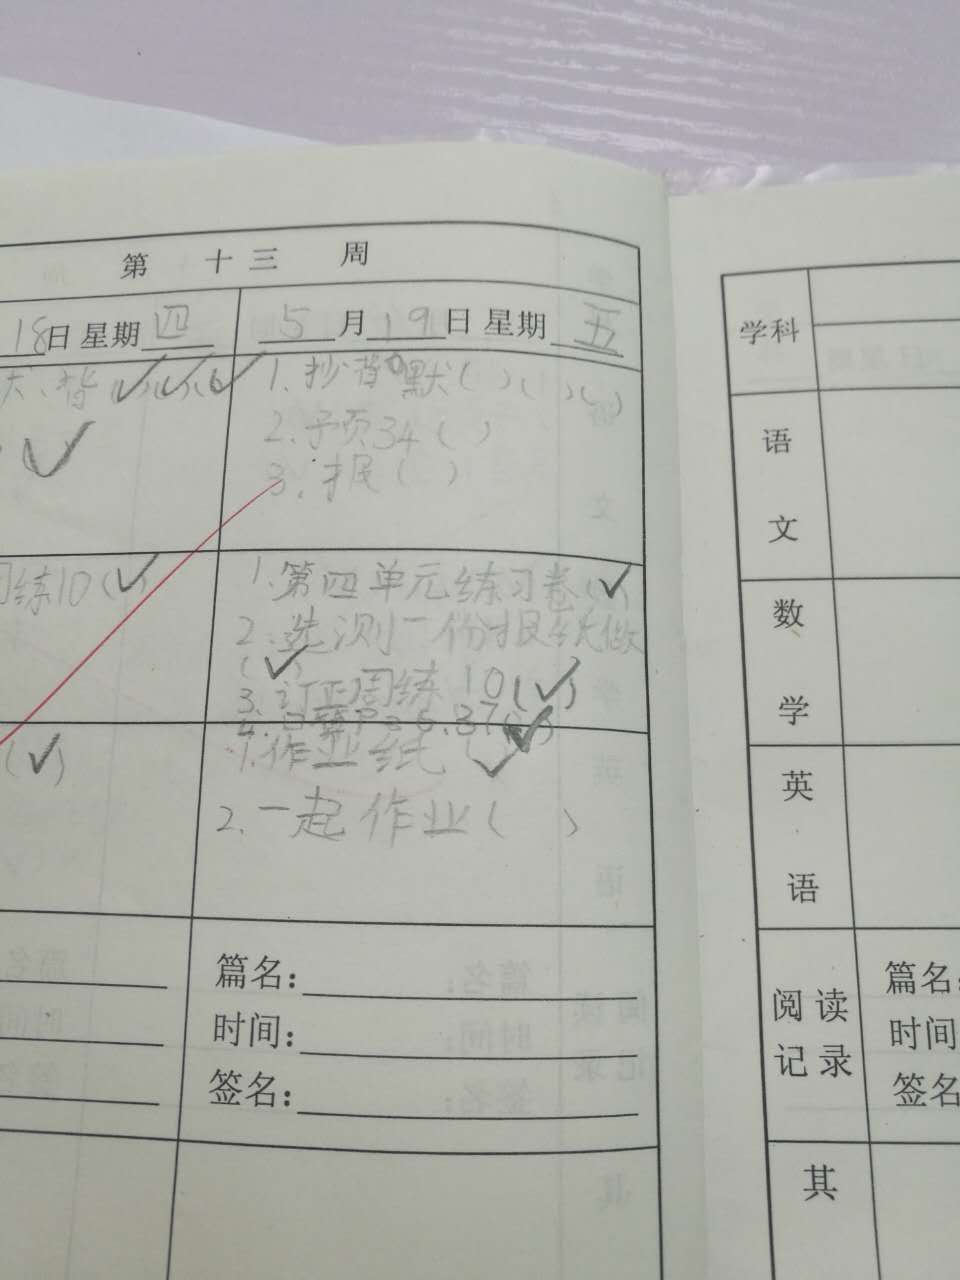 第 十三 周
18日 星期四
5月19日 星期五
背
1.抄背默( )( )( )
2.予页34( )
3.报( )
练10( )
1.第四单元练习卷( )
2.选测一份报纸做
( )
3.订正周练 10( )
4.口算P
( )
1.作业纸( )
2.一起作业( )
篇名:
时间:
签名:
学科
语文
数学
英语
阅读记录
篇名:
时间
签名
其